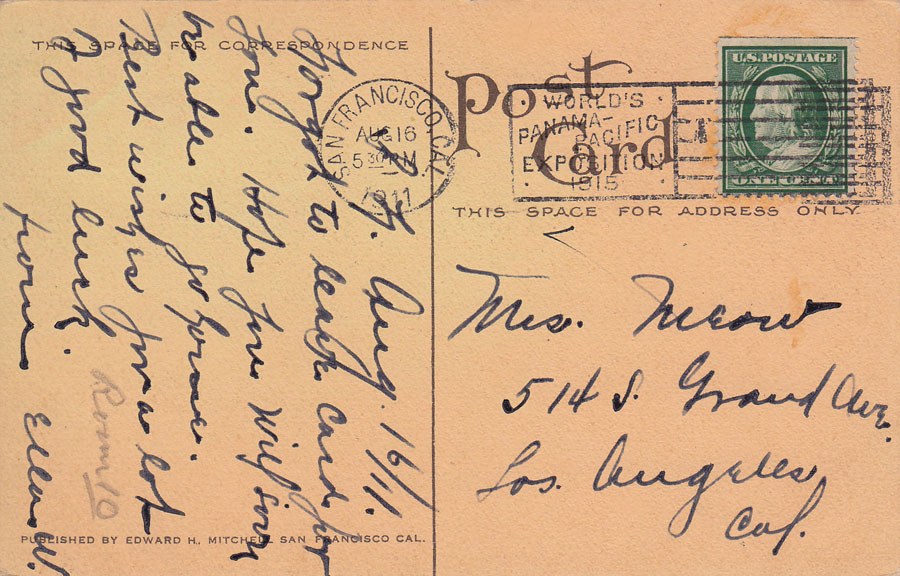 THIS SPACE FOR CORRESPONDENCE
Post
Card
SAN FRANCISCO, CAL.
AUG 16
5 30 PM
1911
WORLD'S
PANAMA-
PACIFIC
EXPOSITION
1915
U.S. POSTAGE
ONE CENT
THIS SPACE FOR ADDRESS ONLY.
Aug. 16/11.
Forgot to leave card for
you. Hope you will soon
be able to go home.
Best wishes for a lot
of good luck.
from Ella W.
Room 10
Mrs. Meow
514 S. Grand Ave.
Los Angeles
Cal.
PUBLISHED BY EDWARD H. MITCHELL SAN FRANCISCO CAL.